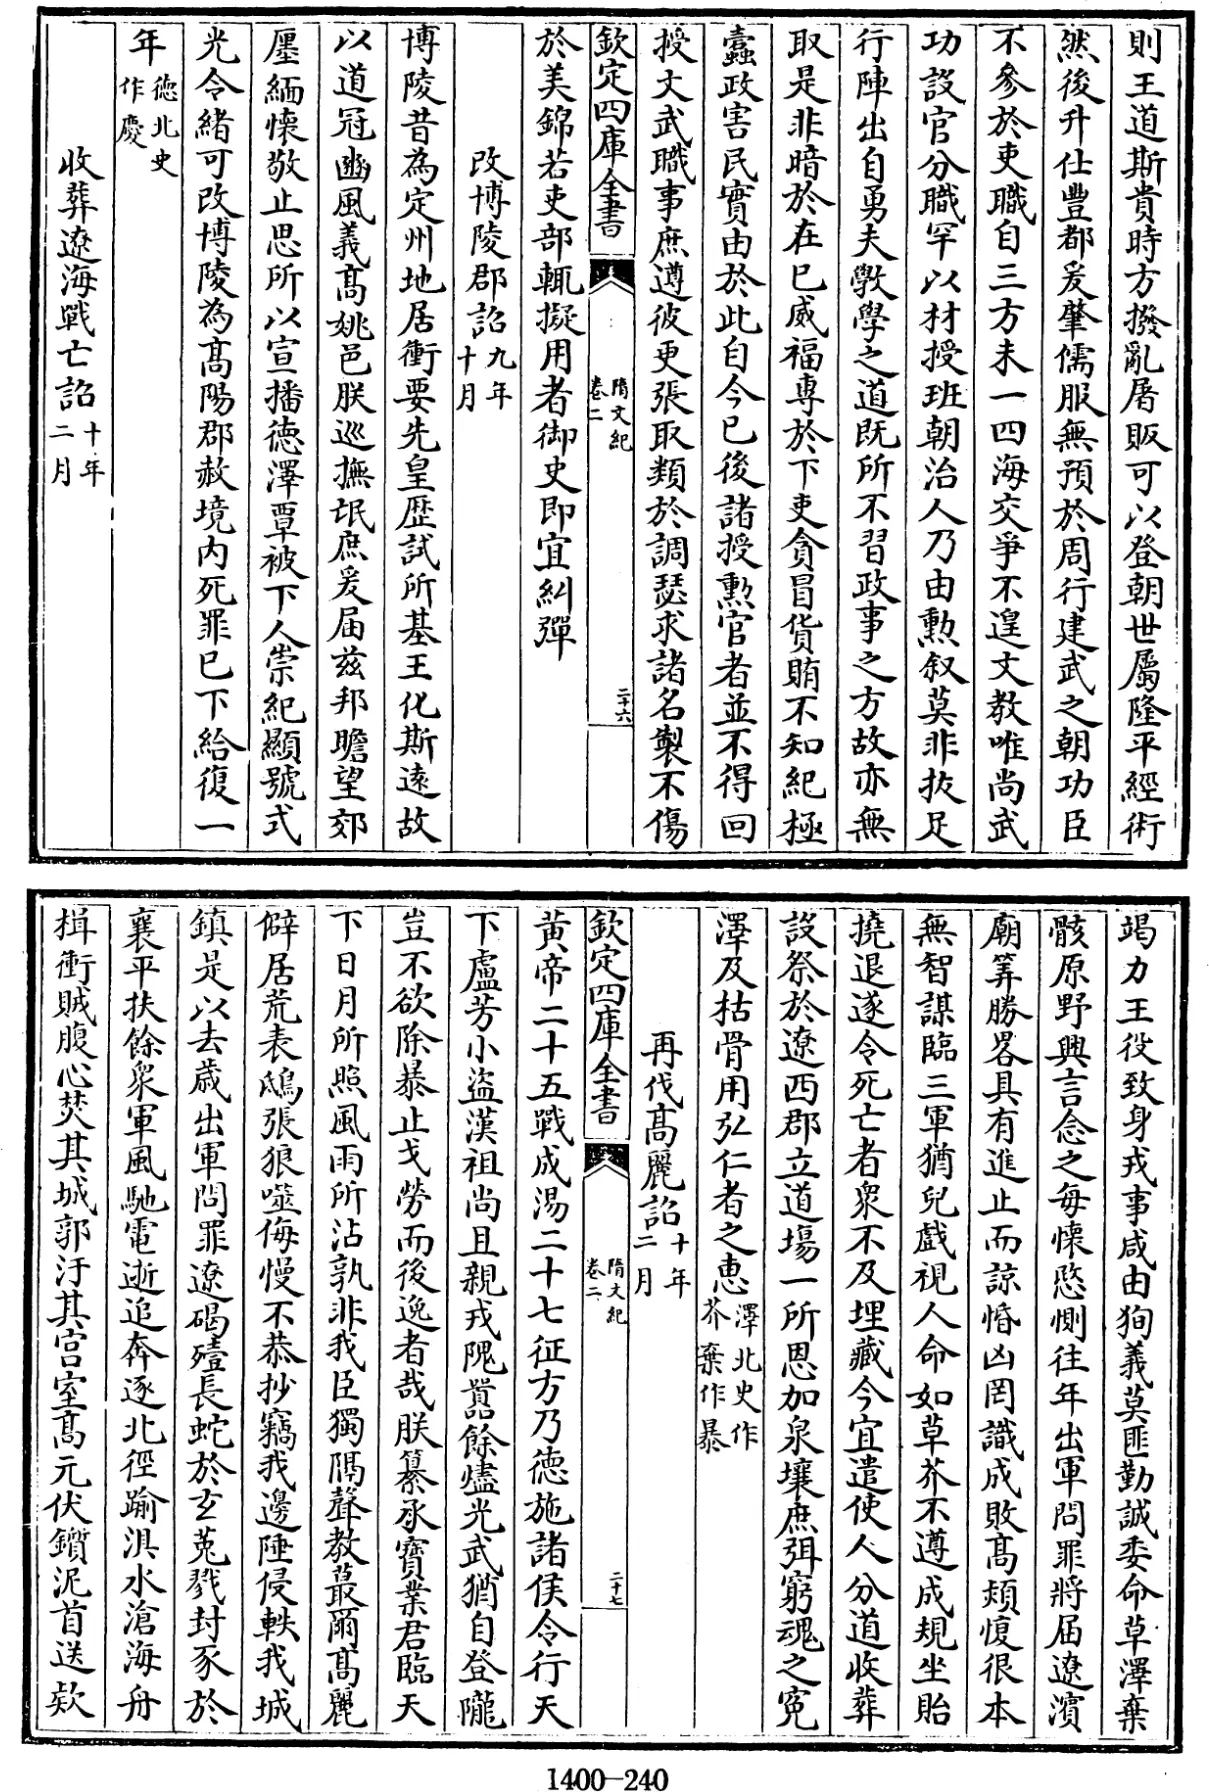 則王道斯貴時方撥亂屠販可以登朝世屬隆平經術
然後升仕豐都爰肇儒服無預於周行建武之朝功臣
不參於吏職自三方未一四海交爭不遑文教唯尚武
功設官分職罕以材授班朝治人乃由勲叙莫非拔足
行陣出自勇夫斆學之道既所不習政事之方故亦無
取是非暗於在已威福專於下吏貪冒貨賄不知紀極
蠹政害民實由於此自今已後諸授勲官者並不得回
授文武職事庶遵彼更張取類於調瑟求諸名製不傷
欽定四庫全書
隋文紀
卷二
二十六
於美錦若吏部輒擬用者御史即宜糾彈
改博陵郡詔九年
十月
博陵昔為定州地居衝要先皇歴試所基王化斯逺故
以道冠豳風義髙姚邑朕巡撫氓庶爰届兹邦瞻望郊
廛緬懷敬止思所以宣播德澤覃被下人崇紀顯號式
光令緒可改博陵為髙陽郡赦境内死罪已下給復一
年德北史
作慶
收葬遼海戰亡詔十年
二月
竭力王役致身戎事咸由狥義莫匪勤誠委命草澤棄
骸原野興言念之每懷愍惻往年出軍問罪將届遼濱
廟筭勝畧具有進止而諒惛凶罔識成敗髙熲愎很本
無智謀臨三軍猶兒戲視人命如草芥不遵成規坐貽
撓退遂令死亡者衆不及埋藏今宜遣使人分道收葬
設祭於遼西郡立道場一所恩加泉壤庶弭窮魂之寃
澤及枯骨用弘仁者之惠澤北史作
芥棄作暴
再伐髙麗詔十年
二月
欽定四庫全書
隋文紀
卷二
二十七
黄帝二十五戰成湯二十七征方乃德施諸侯令行天
下盧芳小盜漢祖尚且親戎隗囂餘燼光武猶自登隴
豈不欲除暴止戈勞而後逸者哉朕纂承寳業君臨天
下日月所照風雨所沾孰非我臣獨隔聲教蕞爾髙麗
僻居荒表鴟張狼噬侮慢不恭抄竊我邊陲侵軼我城
鎮是以去歳出軍問罪遼碣殪長蛇於玄菟戮封豕於
襄平扶餘衆軍風馳電逝追奔逐北徑踰浿水滄海舟
楫衝賊腹心焚其城郭汙其宫室髙元伏鑕泥首送欵
1400—240